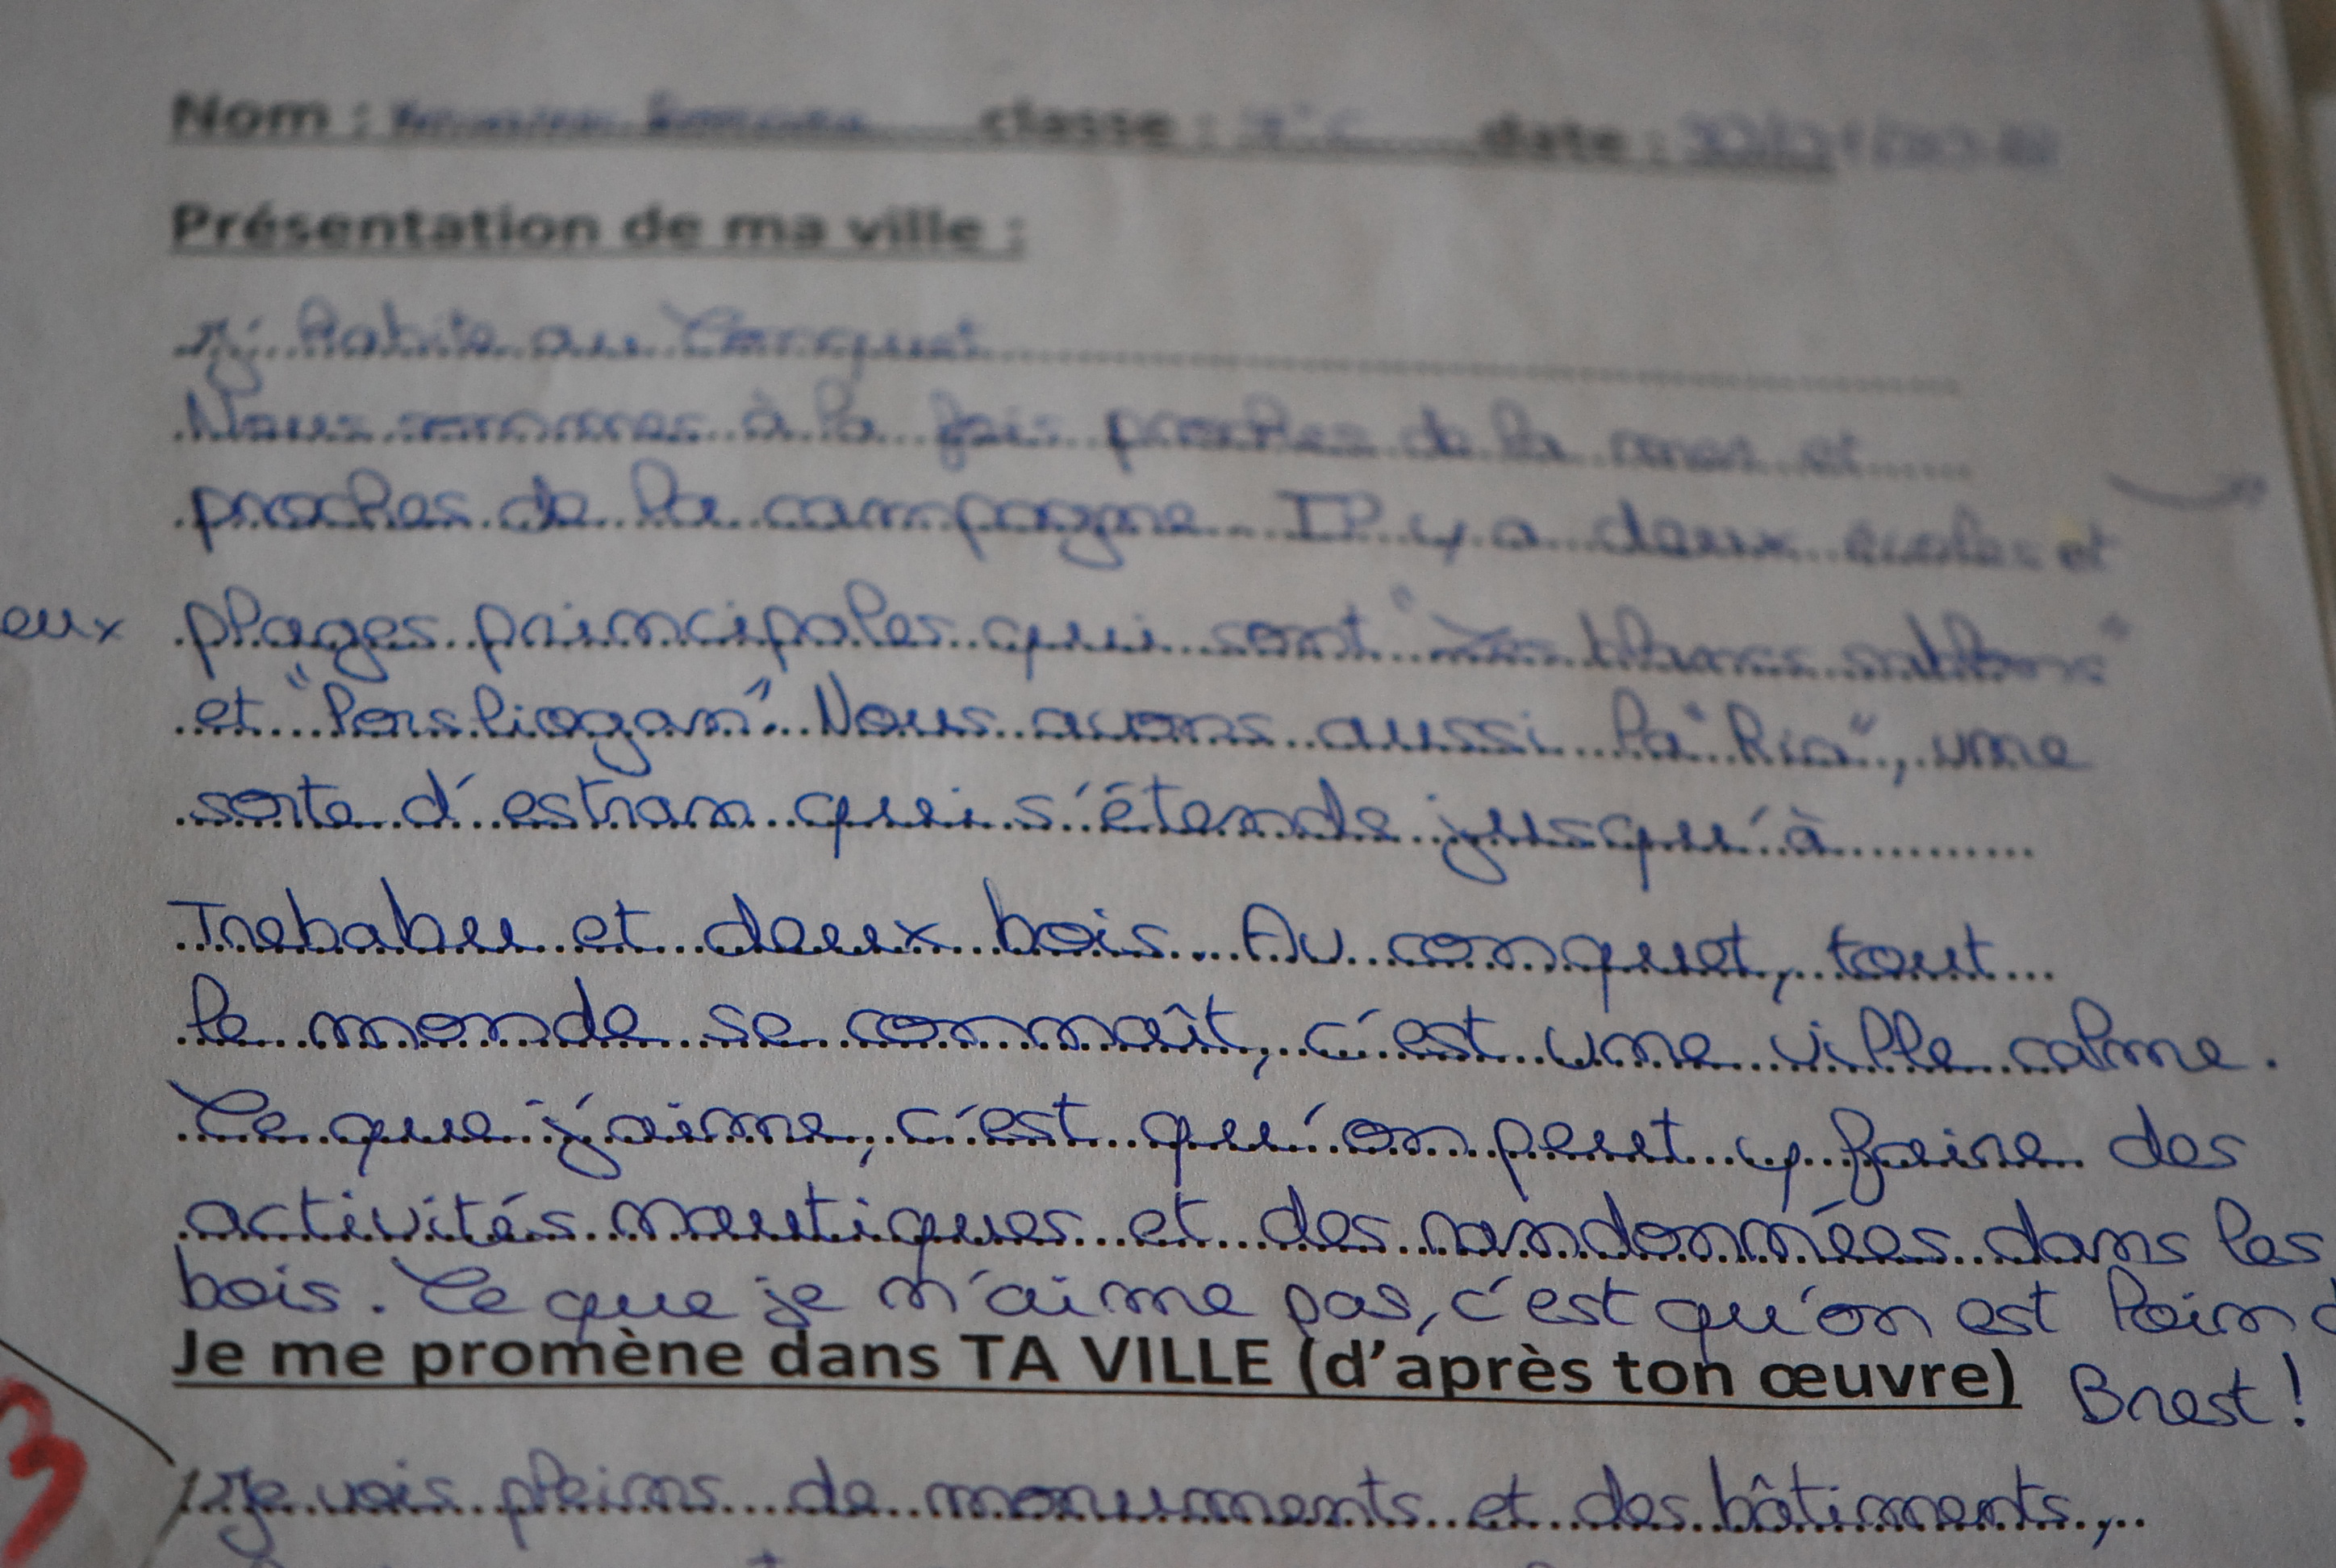 Nom : classe : date :
Présentation de ma ville :
J'habite au Conquet
Nous sommes à la fois proches de la mer et
proches de la campagne. Il y a deux écoles et
eux plages principales qui sont "Les blancs sablons"
et "Porsliogan". Nous avons aussi la "Ria", une
sorte d'estran qui s'étende jusqu'à
Trebabu et deux bois. Au conquet, tout
le monde se connaît, c'est une ville calme.
Ce que j'aime, c'est qu'on peut y faire des
activités nautiques et des randonnées dans les
bois. Ce que je n'aime pas, c'est qu'on est loin d
Je me promène dans TA VILLE (d'après ton œuvre) Brest !
3
Je vois pleins de monuments et des bâtiments,